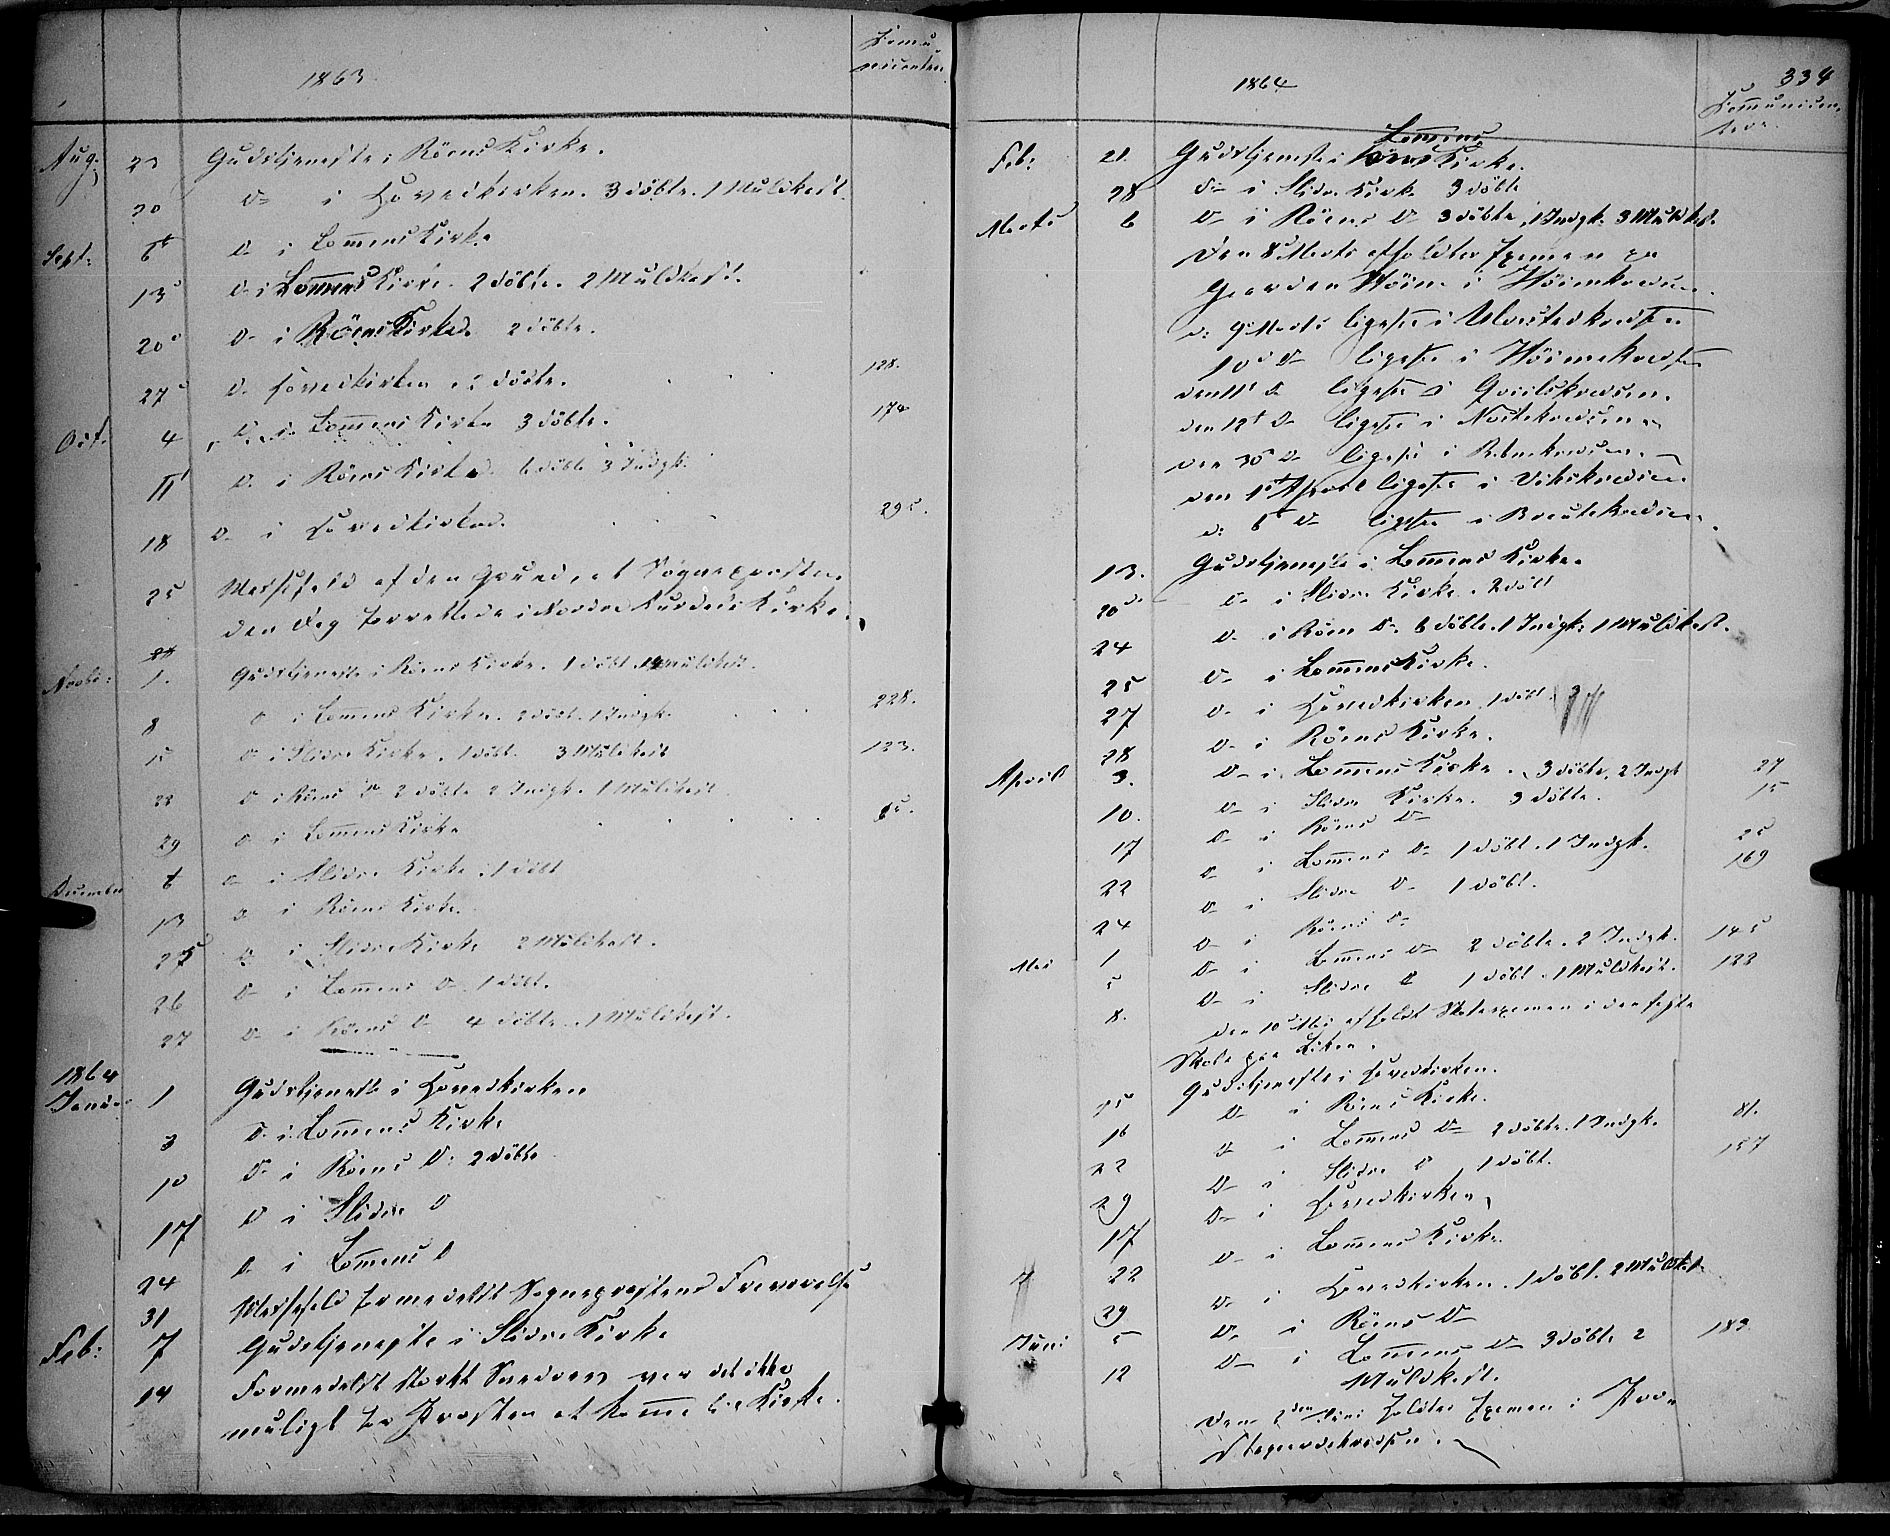 1863
Aug: 23 Gudstjeneste i Röens Kirke.
30 D- i Hovedkirken. 3 döbte. 1 Muldkast.
Sept: 6t D- i Lomens Kirke
13 D- i Lomens Kirke. 2 döbte. 2 Muldkast.
20 D- i Röens Kirke 2 döbte.
27 D- Hovedkirken 2 döbte. 128.
Oct. 4 D- i Lomens Kirke 3 döbte. 174
11 D. i Röens Kirke 6 döbte 3 Indgk.
18 D- i Hovedkirken. 295.
25 Messefald af den Grund, at Sognepresten
den Dag forrettede i Nordre Aurdals Kirke.
Novbr: 1. Gudstjeneste i Röens Kirke. 1 döbt. Muldkast.
8 D i Lomens Kirke. 2 döbt. 1 Indgk. 228.
15 D i Slidre Kirke. 1 döbt. 3 Muldkast 123.
22 D i Röens D- 2 döbte 2 Indgk. 1 Muldkast
29 D i Lomens Kirke
December 6 D- i Slidre Kirke 1 döbt
13 D i Röens Kirke.
25 D i Slidre Kirke 2 Muldkast.
26 D- i Lomens D- 1 döbt.
27 D- i Röens D- 4 döbte. 1 Muldkast.
1864
Januar 1 Gudstjeneste i Hovedkirken
3 D- i Lomens Kirke
10 D- i Röens D: 2 döbte
17 D i Slidre D
24 D. i Lomens D
31 Messefald formedelst Sogneprestens Fraværelse
Feb: 7 Gudstjeneste i Slidre Kirke
14 Formedelst stærkt Snedrev var det ikke
muligt for Presten at komme til Kirke.
1864
334
Kommunicantere.
Feb: 21. Gudstjeneste i Lomens Kirke.
28 D- i Slidre Kirke 3 döbte
Marts 6 D- i Röens D- 3 döbte, 1 Indgk. 3 Muldkast.
Den 8 Marts afholdtes Examen paa
Gaarden Höine i Höinekredsen.
d: 9 Marts ligesaa i Ulnestadkredsen
10 D- ligesaa i Höinekredsen
den 11t D- ligesaa i Qvilskredsen.
den 12t D- ligesaa i Nordkredsen
den 30 D- ligesaa i Rebnekredsen.
den 1ste April ligesaa i Vikskredsen.
d: 6t D- ligesaa i Brautekredsen.
13. Gudstjeneste i Lomens Kirke.
20 D- i Slidre Kirke. 2 döbt
24 D- i Röen D- 6 döbte. 1 Indgk: 1 Muldkast.
25 D- i Lomens Kirke.
27 D- i Hovedkirken 1 döbt.
28 D- i Röens Kirke.
April 3. D- i Lomens Kirke. 3 döbte, 2 Indgk 27
10. D- i Slidre Kirke. 3 döbte. 15
17 D- i Röens D-
22 D- i Lomens D- 1 döbt. 1 Indgk. 25
24 D- i Slidre D- 1 döbt. 169
Mai 1 D- i Röens D-
5 D- i Lomens D- 2 döbte. 2 Indgk. 145
8. D- i Slidre D 1 döbt. 1 Muldkast. 122
Den 10 Mai afholdt Skoleexamen i den faste
Skole paa Liken.
15 Gudstjeneste i Hovedkirken.
16 D- i Röens Kirke.
22 D- i Lomens D- 2 döbte. 1 Indgk. 81.
29 D- i Slidre D 1 döbt. 157
17 D- i Hovedkirken
22 D- i Lomens Kirke.
29 D- i Hovedkirken. 1 döbt. 2 Muldkast.
Juni 5 D- i Röens D-
12 D- i Lomens D- 3 döbte 2 183.
Muldkast.
Den 2den Juni holdtes Examen i